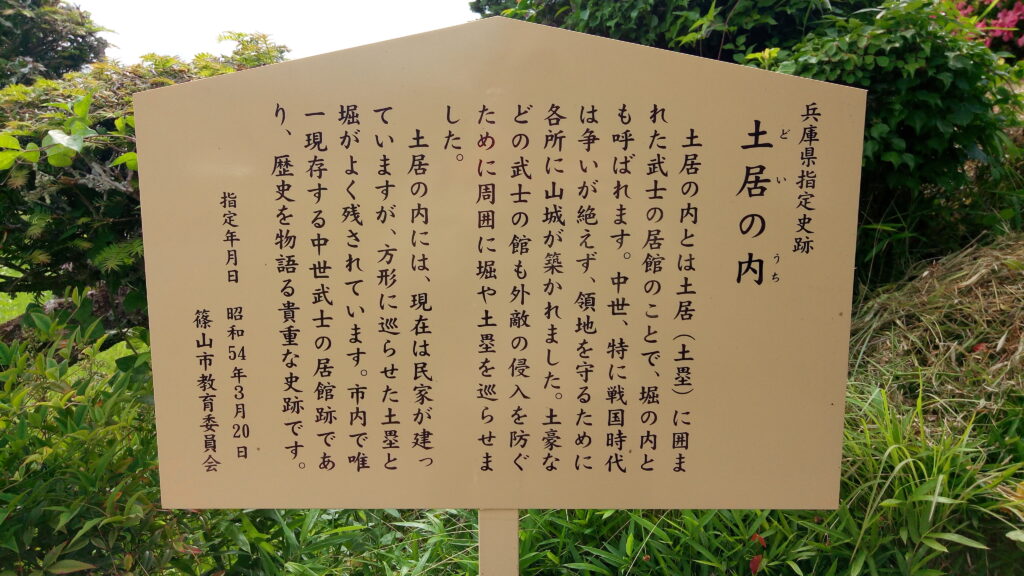 兵庫県指定史跡
土居の内
どい
うち
土居の内とは土居（土塁）に囲ま
れた武士の居館のことで、堀の内と
も呼ばれます。中世、特に戦国時代
は争いが絶えず、領地を守るために
各所に山城が築かれました。土豪な
どの武士の館も外敵の侵入を防ぐ
ために周囲に堀や土塁を巡らせま
した。
土居の内には、現在は民家が建っ
ていますが、方形に巡らせた土塁と
堀がよく残されています。市内で唯
一現存する中世武士の居館跡であ
り、歴史を物語る貴重な史跡です。
指定年月日 昭和54年3月20日
篠山市教育委員会